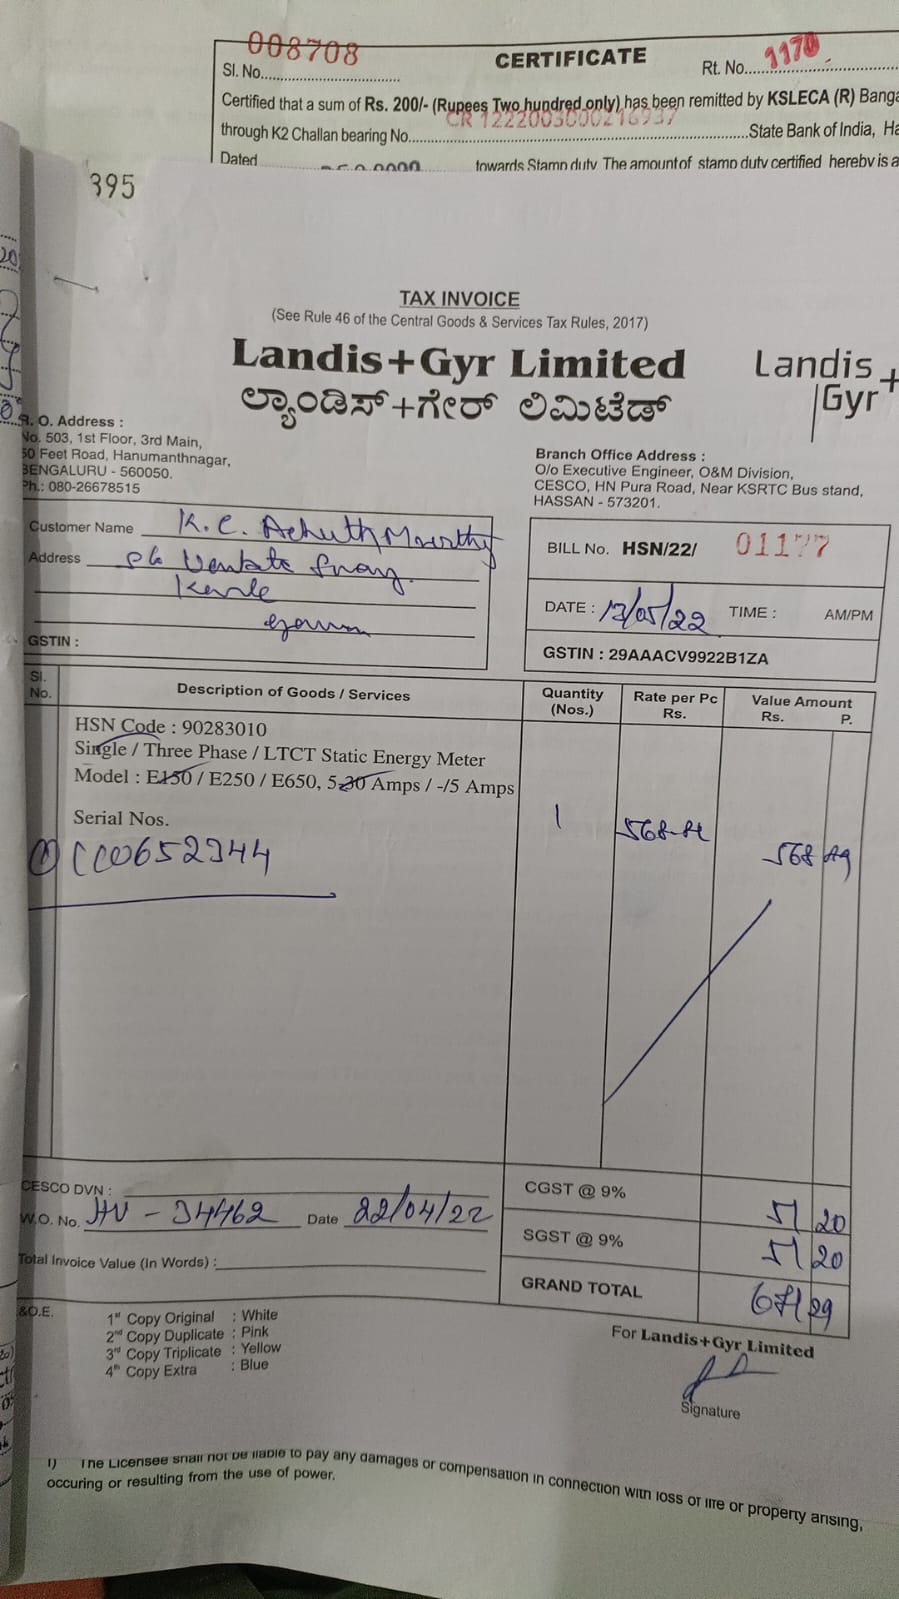 008708
CERTIFICATE
Sl. No.
Rt. No. 1170
Certified that a sum of Rs. 200/- (Rupees Two hundred only) has been remitted by KSLECA (R) Banga
CR 1222003000216937
through K2 Challan bearing No. State Bank of India, Ha
Dated towards Stamp duty. The amount of stamp duty certified hereby is a
395
TAX INVOICE
(See Rule 46 of the Central Goods & Services Tax Rules, 2017)
Landis+Gyr Limited
ಲ್ಯಾಂಡಿಸ್+ಗೇರ್ ಲಿಮಿಟೆಡ್
Landis
Gyr+
R. O. Address :
No. 503, 1st Floor, 3rd Main,
50 Feet Road, Hanumanthnagar,
BENGALURU - 560050.
Ph.: 080-26678515
Branch Office Address :
O/o Executive Engineer, O&M Division,
CESCO, HN Pura Road, Near KSRTC Bus stand,
HASSAN - 573201.
Customer Name K.C. Achuth Moorthy
Address
GSTIN :
BILL No. HSN/22/ 01177
DATE : 12/05/22 TIME : AM/PM
GSTIN : 29AAACV9922B1ZA
Sl. No. Description of Goods / Services Quantity (Nos.) Rate per Pc Rs. Value Amount Rs. P.
HSN Code : 90283010
Single / Three Phase / LTCT Static Energy Meter
Model : E150 / E250 / E650, 5-30 Amps / -/5 Amps
Serial Nos.
1
568
(1) CC0652344
CESCO DVN :
W.O. No. HV - 34462 Date 22/04/22
Total Invoice Value (In Words) :
CGST @ 9% 51 20
SGST @ 9% 51 20
GRAND TOTAL 671 29
&O.E.
1st Copy Original : White
2nd Copy Duplicate : Pink
3rd Copy Triplicate : Yellow
4th Copy Extra : Blue
For Landis+Gyr Limited
Signature
I) The Licensee shall not be liable to pay any damages or compensation in connection with loss of life or property arising,
occuring or resulting from the use of power.